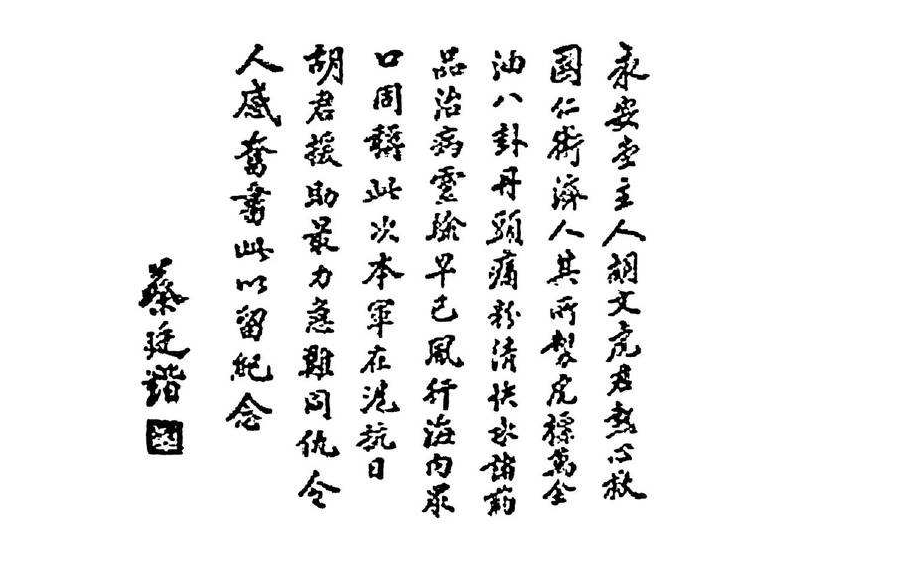 永安堂主人胡文虎君熱心救
國仁術濟人其所製虎標萬金
油八卦丹頭痛粉清快水諸葯
品治病靈驗早已風行海内眾
口周轟此次本軍在滬抗日
胡君援助最力急難同仇令
人感奮書此以留紀念
蔡廷鍇